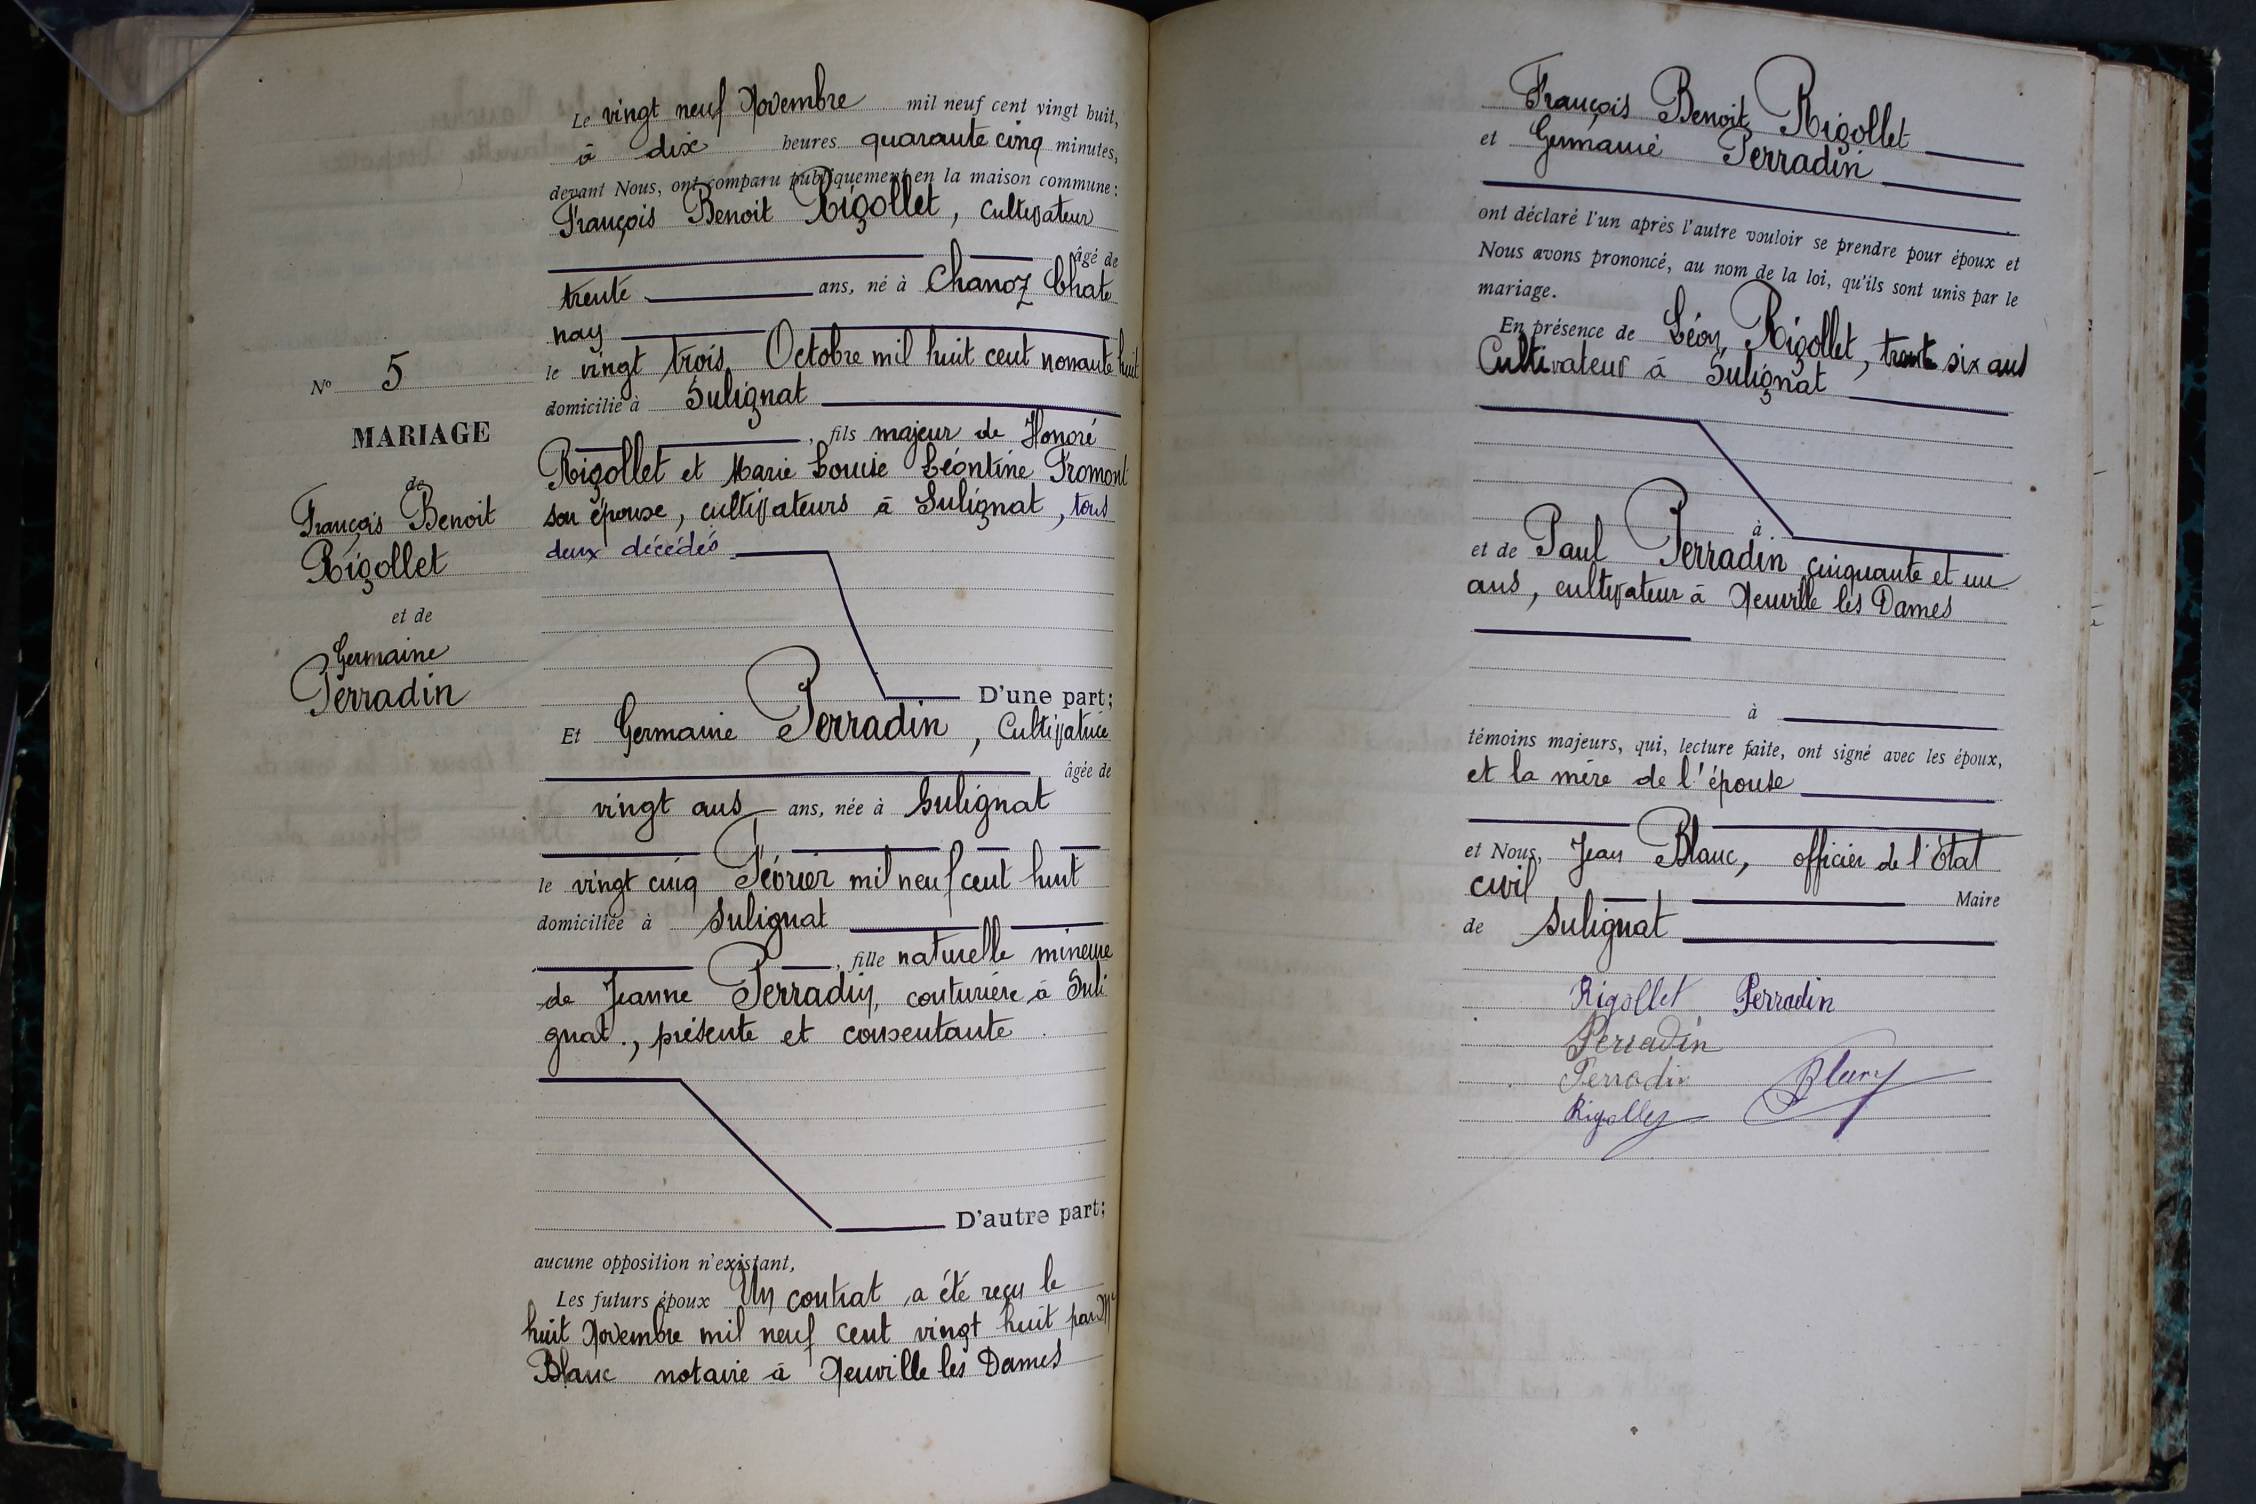 Le vingt neuf Novembre mil neuf cent vingt huit,
à dix heures quarante cinq minutes,
devant Nous, ont comparu publiquement en la maison commune :
François Benoit Rigollet, cultivateur
âgé de
trente ans, né à Chanoz Chate
nay
le vingt trois Octobre mil huit cent nonante huit
domicilié à Sulignat
, fils majeur de Honoré
Rigollet et Marie Louise Léontine Fromont
son épouse, cultivateurs à Sulignat, tous
deux décédés
D'une part;
Et Germaine Perradin, Cultivatrice
âgée de
vingt ans ans, née à Sulignat
le vingt cinq Février mil neuf cent huit
domiciliée à Sulignat
, fille naturelle mineure
de Jeanne Perradin, couturière à Suli
gnat., présente et consentante.
D'autre part;
aucune opposition n'existant,
Les futurs époux Un contrat a été reçu le
huit Novembre mil neuf cent vingt huit par Me
Blanc notaire à Neuville les Dames
No 5
MARIAGE
de
François Benoit
Rigollet
et de
Germaine
Perradin
François Benoit Rigollet
et Germaine Perradin
ont déclaré l'un après l'autre vouloir se prendre pour époux et
Nous avons prononcé, au nom de la loi, qu'ils sont unis par le
mariage.
En présence de Léon Rigollet, trente six ans
Cultivateur à Sulignat
à
et de Paul Perradin cinquante et un
ans, cultivateur à Neuville les Dames
à
témoins majeurs, qui, lecture faite, ont signé avec les époux,
et la mère de l'épouse
et Nous, Jean Blanc, officier de l'État
civil Maire
de Sulignat
Rigollet Perradin
Perradin
Perradin Blanc
Rigollet